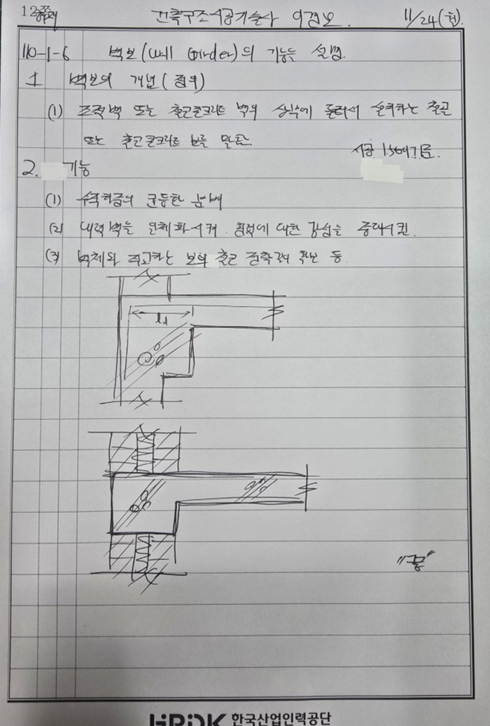 12
건축구조시공기술사 11/24(월)
110-1-6 벽보(Wall Girder)의 기능을 설명
1 벽보의 개념(정의)
(1) 조적벽 또는 철근콘크리트 벽의 상부에 설치하는 철골
또는 철근콘크리트 보를 말함.
시공
2. 기능
(1) 수직하중의 균등한 분배
(2) 내력벽을 일체화시켜 대한 강성을 증대시킨
(3) 벽체와 직교하는 보의 철근 길이 확보 등
ld
"끝"
HRDK 한국산업인력공단